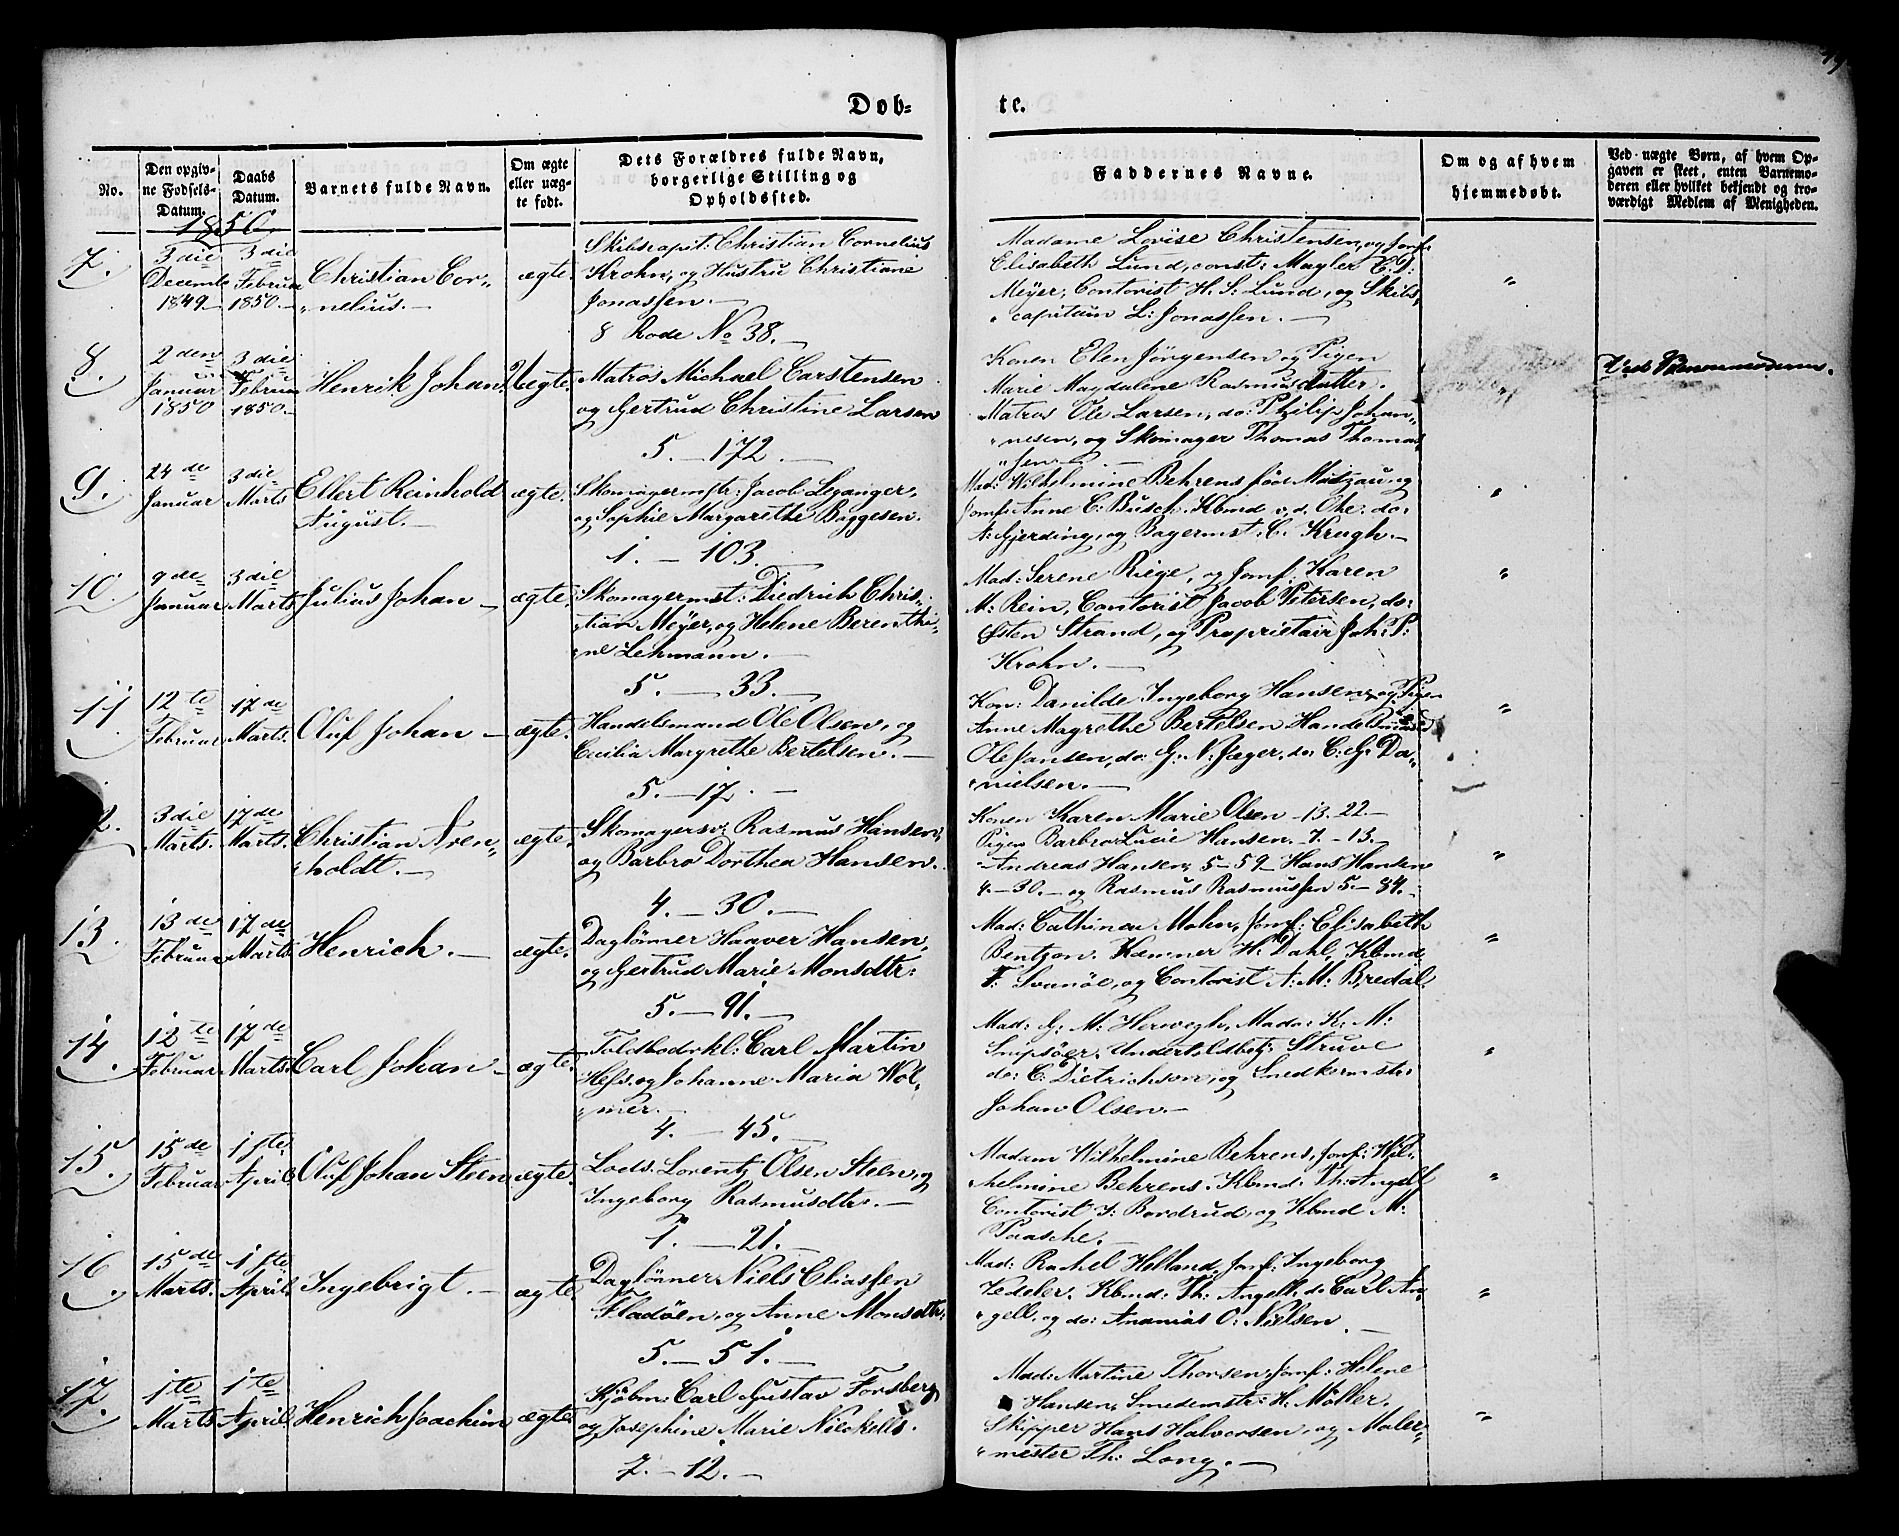 49
Døb-
te.
No.
Den opgiv-
ne Fødsels-
Datum.
Daabs
Datum.
Barnets fulde Navn.
Om ægte
eller uæg-
te født.
Dets Forældres fulde Navn,
borgerlige Stilling og
Opholdssted.
Faddernes Navne.
Om og af hvem
hjemmedøbt.
Ved uægte Børn, af hvem Op-
gaven er skeet, enten Barnemo-
deren eller hvilket bekjendt og tro-
værdigt Medlem af Menigheden.
1850.
7.
3die
Decemb
1849
3die
Februar
1850.
Christian Cor-
nelius.
ægte.
Skibscapit: Christian Cornelius
Krohn, og Hustru Christiane
Jonassen.
8 Rode No 38.
Madame Lovise Christensen, og Jomf:
Elisabeth Lund, const: Mægler C. D:
Meyer, Contorist H. S: Lund, og Skibs-
capitain L: Jonassen.
"
8.
2den
Januar
1850
3die
Februar
1850.
Henrik Johan.
Uægte.
Matros Michael Carstensen
og Gertrud Christine Larsen
5. - 172.
Konen Elen Jørgensen og Pigen
Marie Magdalene Rasmusdatter.
Matros Ole Larsen, do: Philip Johan-
nesen, og Skomager Thomas Thomas-
sen.
"
Ved Barnemoderen.
9.
24de
Januar
3die
Marts
Ellert Reinhold
August.
ægte.
Skomagermstr: Jacob Leganger,
og Sophie Margarethe Baggesen.
1. - 103.
Mad: Wilhelmine Behrens fød Mutzau og
Jomf: Anne C: Busch. Kbmd v. d. Ohe. do:
A: Gjerding, og Bagermst: C. Krugh.
"
10.
9de
Januar
3die
Marts
Julius Johan
ægte.
Skomagermst: Diedrich Chris-
tian Meyer, og Helene Berenthi-
ne Lehmann.
5. - 33.
Mad: Serene Riege, og Jomf: Karen
M: Rein, Contorist Jacob Petersen, do:
Østen Strand, og Proprietair Joh: P:
Krohn.
"
11
12te
Februar
17de
Marts.
Oluf Johan
ægte.
Handelsmand Ole Olsen, og
Cecilia Margrethe Bertelsen.
5. - 17.
Kon: Danilde Ingeborg Hansen, og Pigen
Anne Magrethe Bertelsen Handelsmænd
Ole Jansen, do: G: N: Jæger, do: C: G: Da-
nielsen.
"
12.
3die
Marts.
17de
Marts.
Christian Aren-
holdt.
ægte.
Skomagersv: Rasmus Hansen,
og Barbro Dorthea Hansen.
4. - 30.
Konen Karen Marie Olsen 13. 22.
Pigen Barbro Lucie Hansen. 7. - 13.
Andreas Hansen, 5 - 59 Hans Hansen
4. - 30. og Rasmus Rasmussen 5. - 84.
"
13.
13de
Februar
17de
Marts
Henrich.
ægte.
Daglønner Haaver Hansen,
og Gertrud Marie Monsdtr:
5. - 91.
Mad: Cathinca Mohn, Jomf: Elisabeth
Bentzon. Kæmner H: Dahl, Kbmd
F. Svanöe, og Contorist A: M: Bredal.
"
14.
12te
Februar
17de
Marts.
Carl Johan
ægte.
Toldbodrkl: Carl Martin
Hess, og Johanne Maria Wol-
mer.
4. - 45.
Mad: G: M: Herwegh, Mada: K: M:
Undertoldbetj: Struve
do: C: Dietrichson, og Snedkermstr:
Johan Olsen.
"
15.
15de
Februar
1ste
April
Oluf Johan Steen
ægte.
Lods. Lorentz Olsen Steen, og
Ingeborg Rasmusdtr.
1. - 21.
Madam Wilhelmine Behrens, Jomf: Wil-
helmine Behrens. Kbmd: Th: Angell
Contorist J: Bordrud, og Kbmd M:
Paasche.
"
16.
15de
Marts.
1ste
April.
Ingebrigt.
ægte
Daglønner Niels Eliassen
Fladöen, og Anne Monsdtr:
5. - 51.
Mad: Rachel Helland, Jomf: Ingeborg
Vedeler. Kbmd: Th: Angell, do Carl An-
gell, og do: Ananias O: Nielsen
"
17.
1te
Marts
1te
April.
Henrich Joachim
ægte
Kjöbm: Carl Gustav Forsberg
og Josephine Marie Nieckells.
7. - 12.
Mad: Martine Thorsen. Jomf: Helene
Hansen, Smedemstr: H. Möller.
Skipper Hans Halvorsen, og Maler-
mester Th: Long.
"